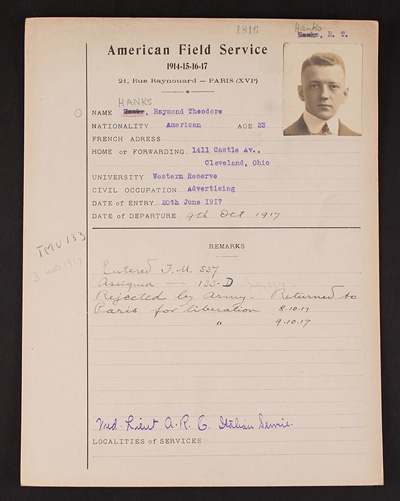 1916
Hanks
, R. T.
American Field Service
1914-15-16-17
21, Rue Raynouard — PARIS (XVIᵉ)
HANKS
NAME , Raymond Theodore
NATIONALITY American AGE 23
FRENCH ADRESS
HOME or FORWARDING 1411 Castle Av.,
Cleveland, Ohio
UNIVERSITY Western Reserve
CIVIL OCCUPATION Advertising
DATE of ENTRY 20th June 1917
DATE of DEPARTURE 9th Oct 1917
TMU 133
REMARKS
Entered T.M. 537
Assigned — 133-D
Rejected by Army. Returned to
Paris for liberation 8.10.17
" 9.10.17
2nd Lieut A.R.C. Italian Service.
LOCALITIES of SERVICES